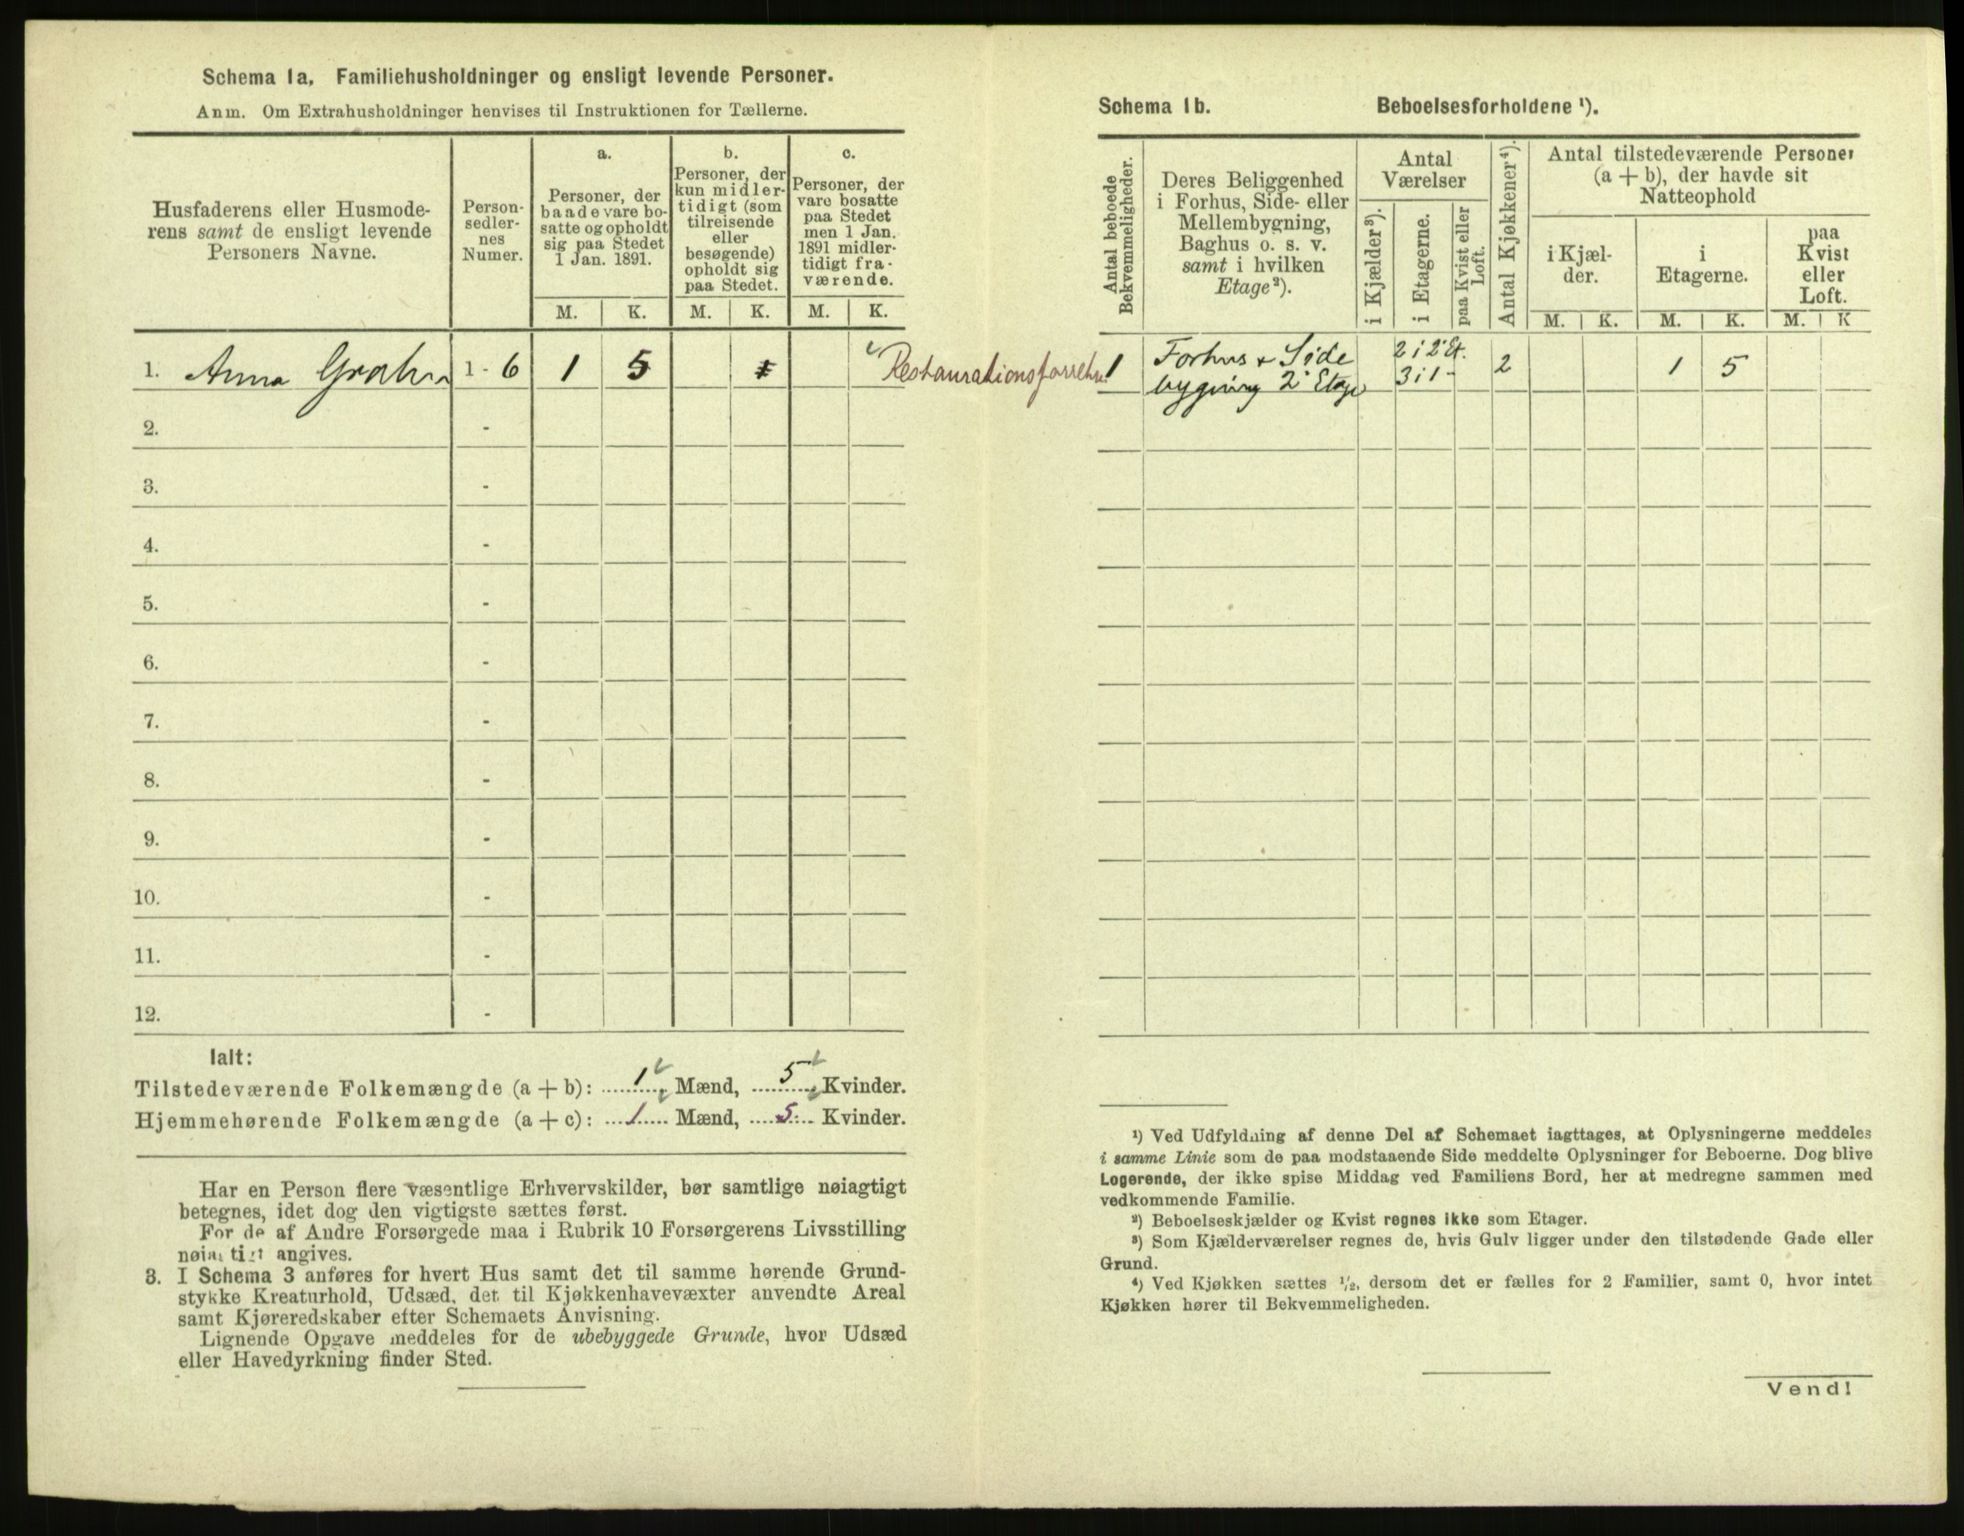 Schema 1a. Familiehusholdninger og ensligt levende Personer.
Anm. Om Extrahusholdninger henvises til Instruktionen for Tællerne.
Husfaderens eller Husmode-
rens samt de ensligt levende
Personers Navne.
Person-
sedler-
nes
Numer.
a.
Personer, der
baade vare bo-
satte og opholdt
sig paa Stedet
1 Jan. 1891.
b.
Personer, der
kun midler-
tidigt (som
tilreisende
eller
besøgende)
opholdt sig
paa Stedet.
c.
Personer, der
vare bosatte
paa Stedet
men 1 Jan.
1891 midler-
tidigt fra-
værende.
M. K. M. K. M. K.
1. Anna 1 - 6 1 5
2. -
3. -
4. -
5. -
6. -
7. -
8. -
9. -
10. -
11. -
12. -
Ialt:
Tilstedeværende Folkemængde (a + b): 1 Mænd, 5 Kvinder.
Hjemmehørende Folkemængde (a + c): 1 Mænd, 5 Kvinder.
Har en Person flere væsentlige Erhvervskilder, bør samtlige nøiagtigt
betegnes, idet dog den vigtigste sættes først.
For de af Andre Forsørgede maa i Rubrik 10 Forsørgerens Livsstilling
nøiagtigt angives.
3. I Schema 3 anføres for hvert Hus samt det til samme hørende Grund-
stykke Kreaturhold, Udsæd, det til Kjøkkenhavevæxter anvendte Areal
samt Kjøreredskaber efter Schemaets Anvisning.
Lignende Opgave meddeles for de ubebyggede Grunde, hvor Udsæd
eller Havedyrkning finder Sted.
Schema 1b. Beboelsesforholdene ¹).
Antal beboede
Bekvemmeligheder.
Deres Beliggenhed
i Forhus, Side- eller
Mellembygning,
Baghus o. s. v.
samt i hvilken
Etage²).
Antal
Værelser
i Kjælder³).
i Etagerne.
paa Kvist eller
Loft.
Antal Kjøkkener⁴).
Antal tilstedeværende Personer
(a + b), der havde sit
Natteophold
i Kjæl-
der.
i
Etagerne.
paa
Kvist
eller
Loft.
M. K. M. K. M. K
1 Forhus + Side 2 i 2' Et. 2 1 5
bygning 2' Etage 3 i 1 -
¹) Ved Udfyldning af denne Del af Schemaet iagttages, at Oplysningerne meddeles
i samme Linie som de paa modstaaende Side meddelte Oplysninger for Beboerne. Dog blive
Logerende, der ikke spise Middag ved Familiens Bord, her at medregne sammen med
vedkommende Familie.
²) Beboelseskjælder og Kvist regnes ikke som Etager.
³) Som Kjælderværelser regnes de, hvis Gulv ligger under den tilstødende Gade eller
Grund.
⁴) Ved Kjøkken sættes ½, dersom det er fælles for 2 Familier, samt 0, hvor intet
Kjøkken hører til Bekvemmeligheden.
Vend!